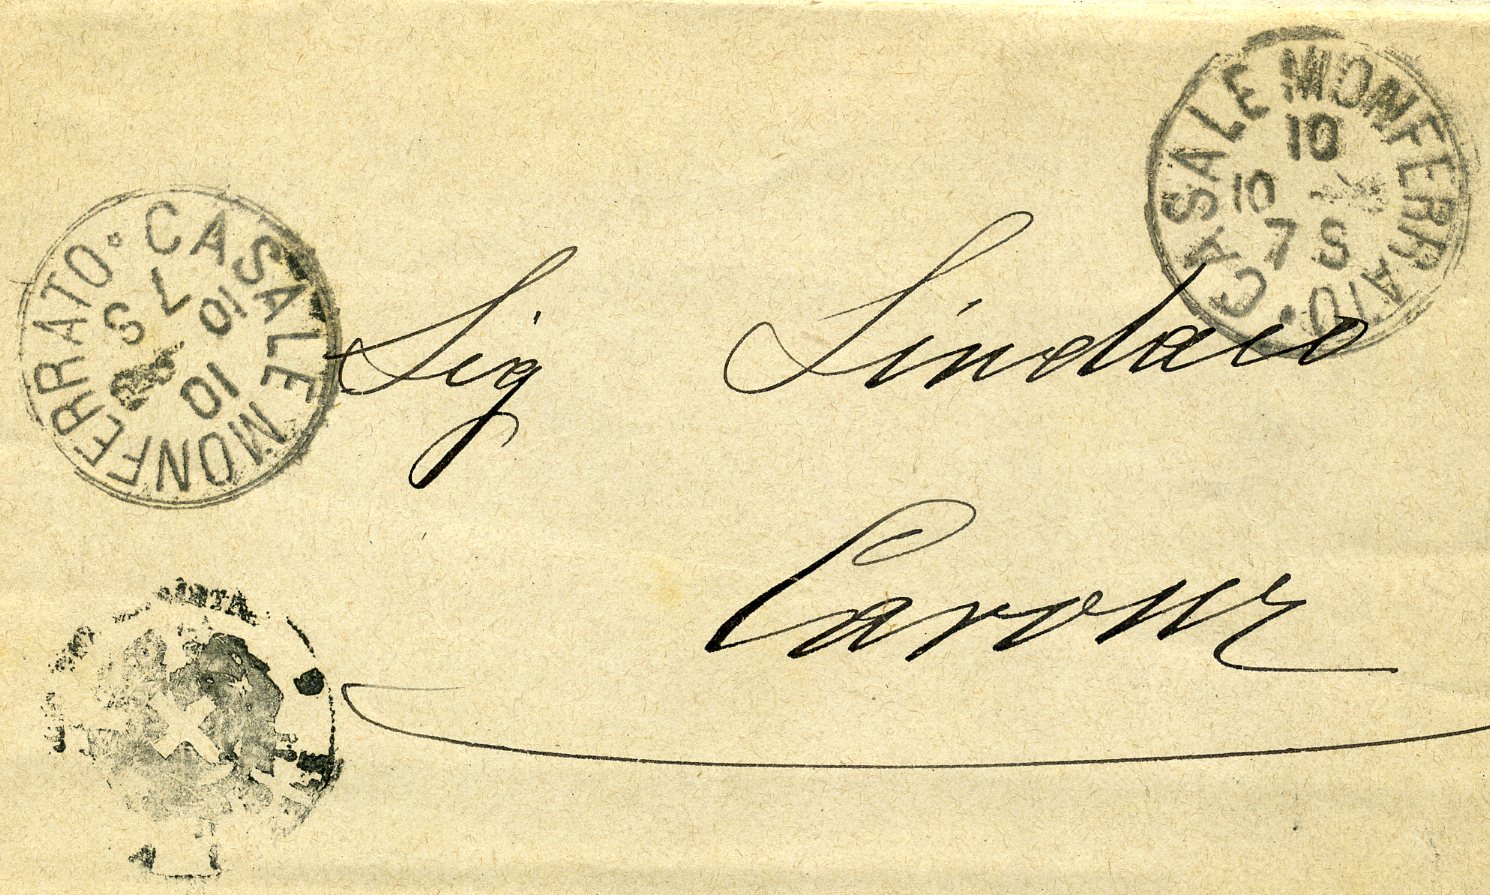 CASALE MONFERRATO
10
10
7 S
CASALE MONFERRATO
10
10
7 S
Sig Sindaco
Cavour